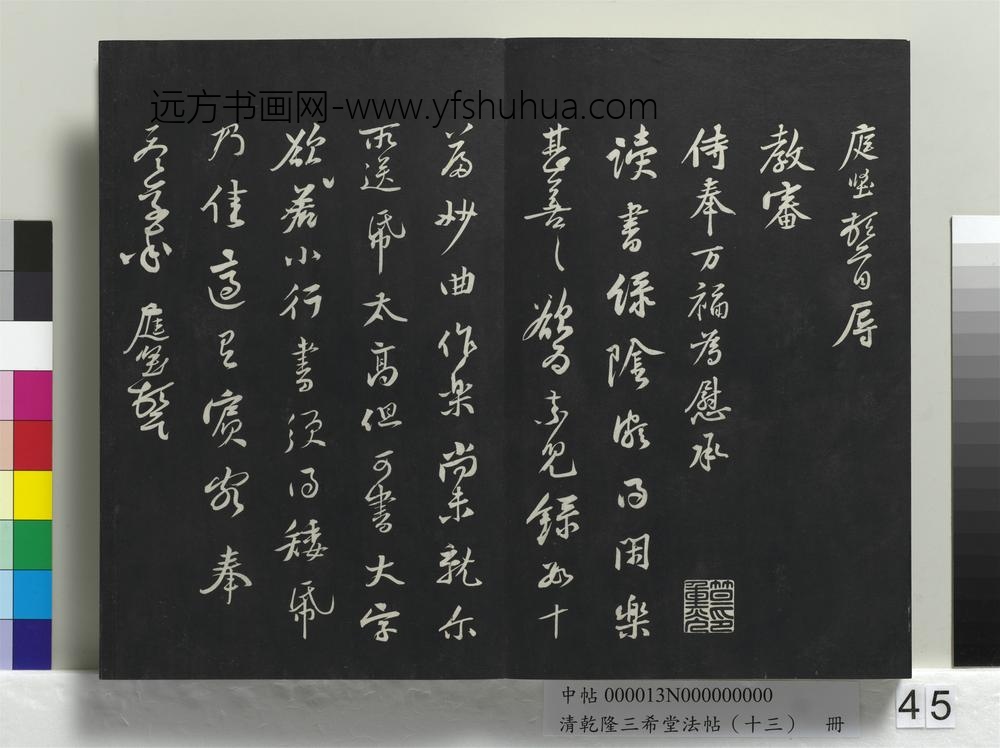 远方书画网-www.yfshuhua.com
庭堅頓首辱
教審
侍奉万福為慰承
讀書綠陰頗得閑樂
甚善〻欲為素兒錄數十
篇妙曲作樂尚未就尔
所送紙太高但可書大字
欲若小行書須得矮紙
乃佳適有賓客奉
答草草 庭堅頓首
中帖 000013N000000000
清乾隆三希堂法帖（十三） 冊
45